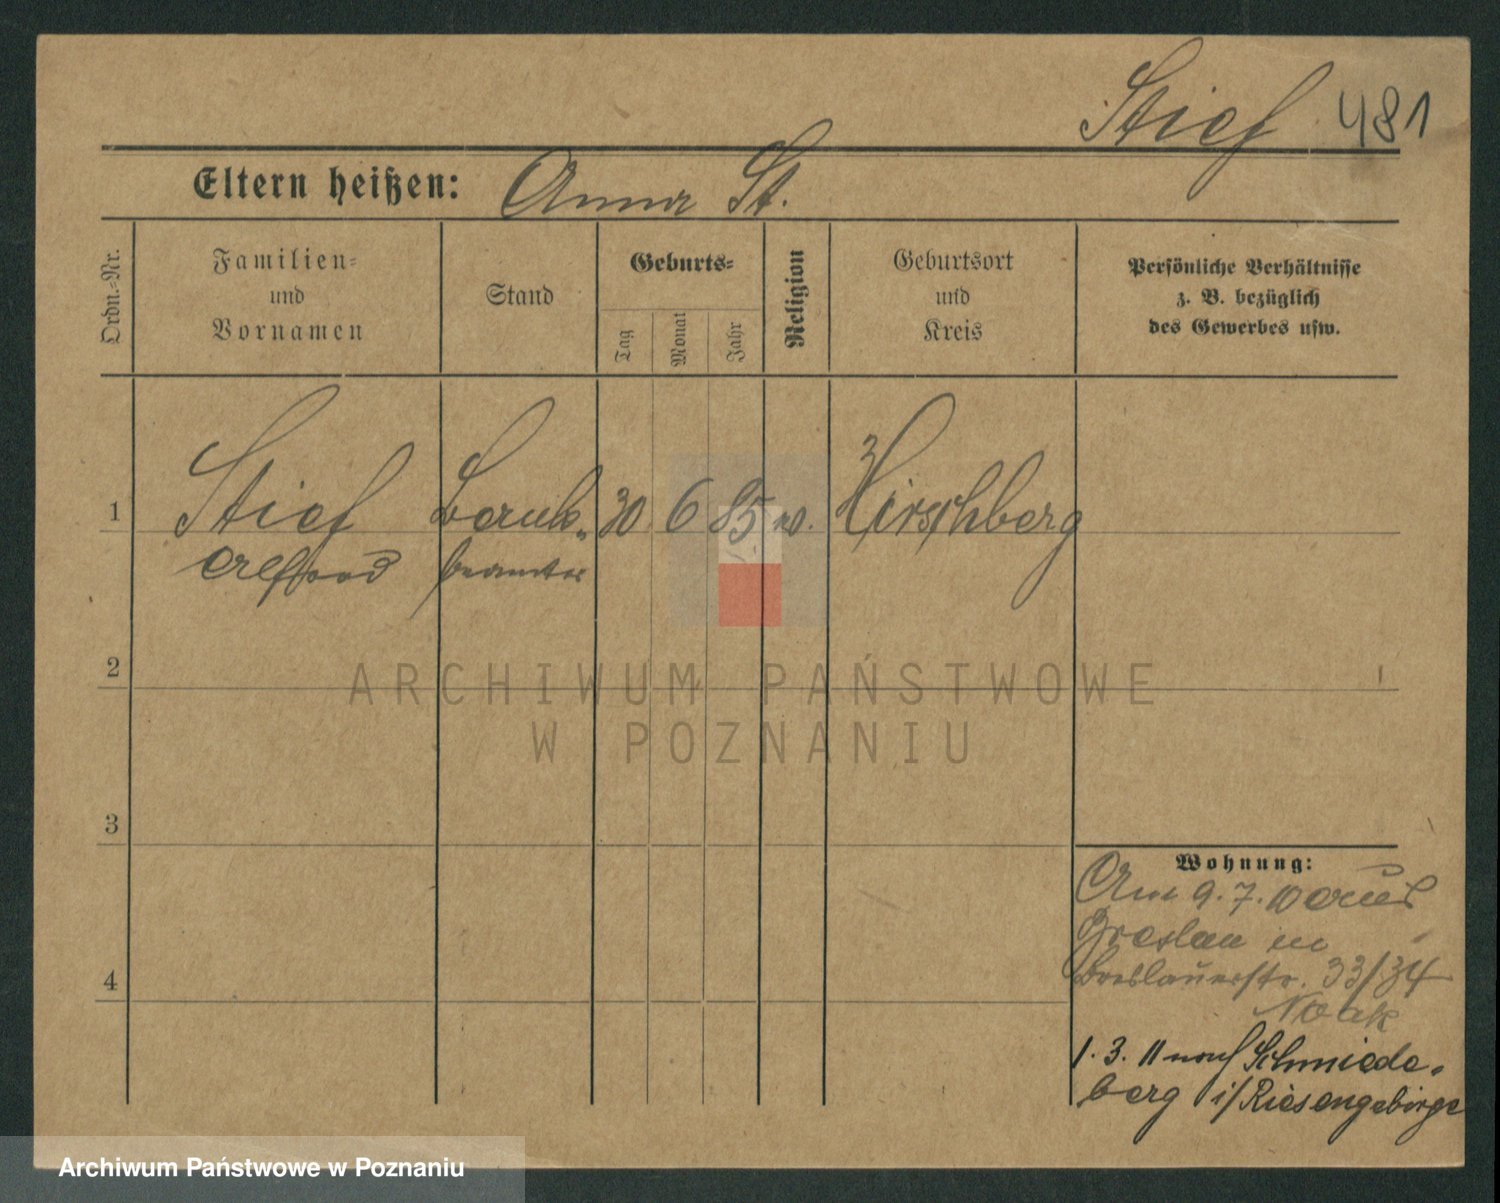 Stief 481
Eltern heißen: Anna St.
Ordn.-Nr.
Familien-
und
Vornamen
Stand
Geburts-
Tag
Monat
Jahr
Religion
Geburtsort
und
Kreis
Persönliche Verhältnisse
z. B. bezüglich
des Gewerbes usw.
1 Stief Bank- 30 6 85 Hirschberg
Alfred beamter
2
3
4
Wohnung:
Am 9. 7. 10 aus
Breslau in
Breslauerstr. 33/34
Noak
1. 3. 11 nach Schmiede-
berg i/Riesengebirge
ARCHIWUM PAŃSTWOWE
W POZNANIU
Archiwum Państwowe w Poznaniu